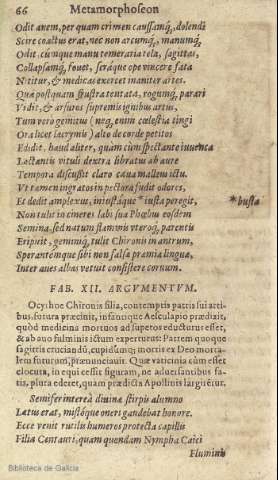 66 Metamorphoseon
Odit auem, per quam crimen caussamq́, dolendi
Scire coactus erat, nec non arcumq́, manumq́
Odit, cúmque manu temeraria tela, sagittas,
Collapsamq́, fouet, seráque ope vincere fata
Nititur, & medicas exercet inaniter artes.
Quæ postquam frustra tentata, rogumq́, parari
Vidit, & arsuros supremis ignibus artus,
Tum vero gemitus (neq́, enim cœlestia tingi
Ora licet lacrymis) alto de corde petitos
Edidit, haud aliter, quàm cùm spectante iuuenca
Lactentis vituli dextra libratus ab aure
Tempora discussit claro caua malleus ictu.
Vt tamen ingratos in pectora fudit odores,
Et dedit amplexus, iniustáque *iusta peregit, *busta
Non tulit in cineres labi sua Phœbus eosdem
Semina, sed natum flammis vteroq́, parentis
Eripuit, geminiq́, tulit Chironis in antrum,
Sperantemque sibi non falsa præmia linguæ,
Inter aues albas vetuit consistere coruum.
FAB. XII. ARGVMENTVM.
Ocyrhoe Chironis filia, contemptis patris sui arti-
bus, futura præcinit, infantique Aesculapio prædixit,
quòd medicina mortuos ad superos educturus esset,
& ab auo fulminis ictum experturus: Patrem quoque
sagittis cruciandũ, cupidumq́; mortis ex Deo morta-
lem futurum, pronunciauit. Quæ vaticinia cùm esset
elocuta, in equi essit figuram, ne aduersantibus fa-
tis, plura ederet, quàm prædicta Apollinis largiretur.
Semifer intereà diuinæ stirpis alumno
Lætus erat, mistóque oneri gaudebat honore.
Ecce venit rutilis humeros protecta capillis
Filia Centauri, quam quondam Nympha Caici
Fluminis
Biblioteca de Galicia